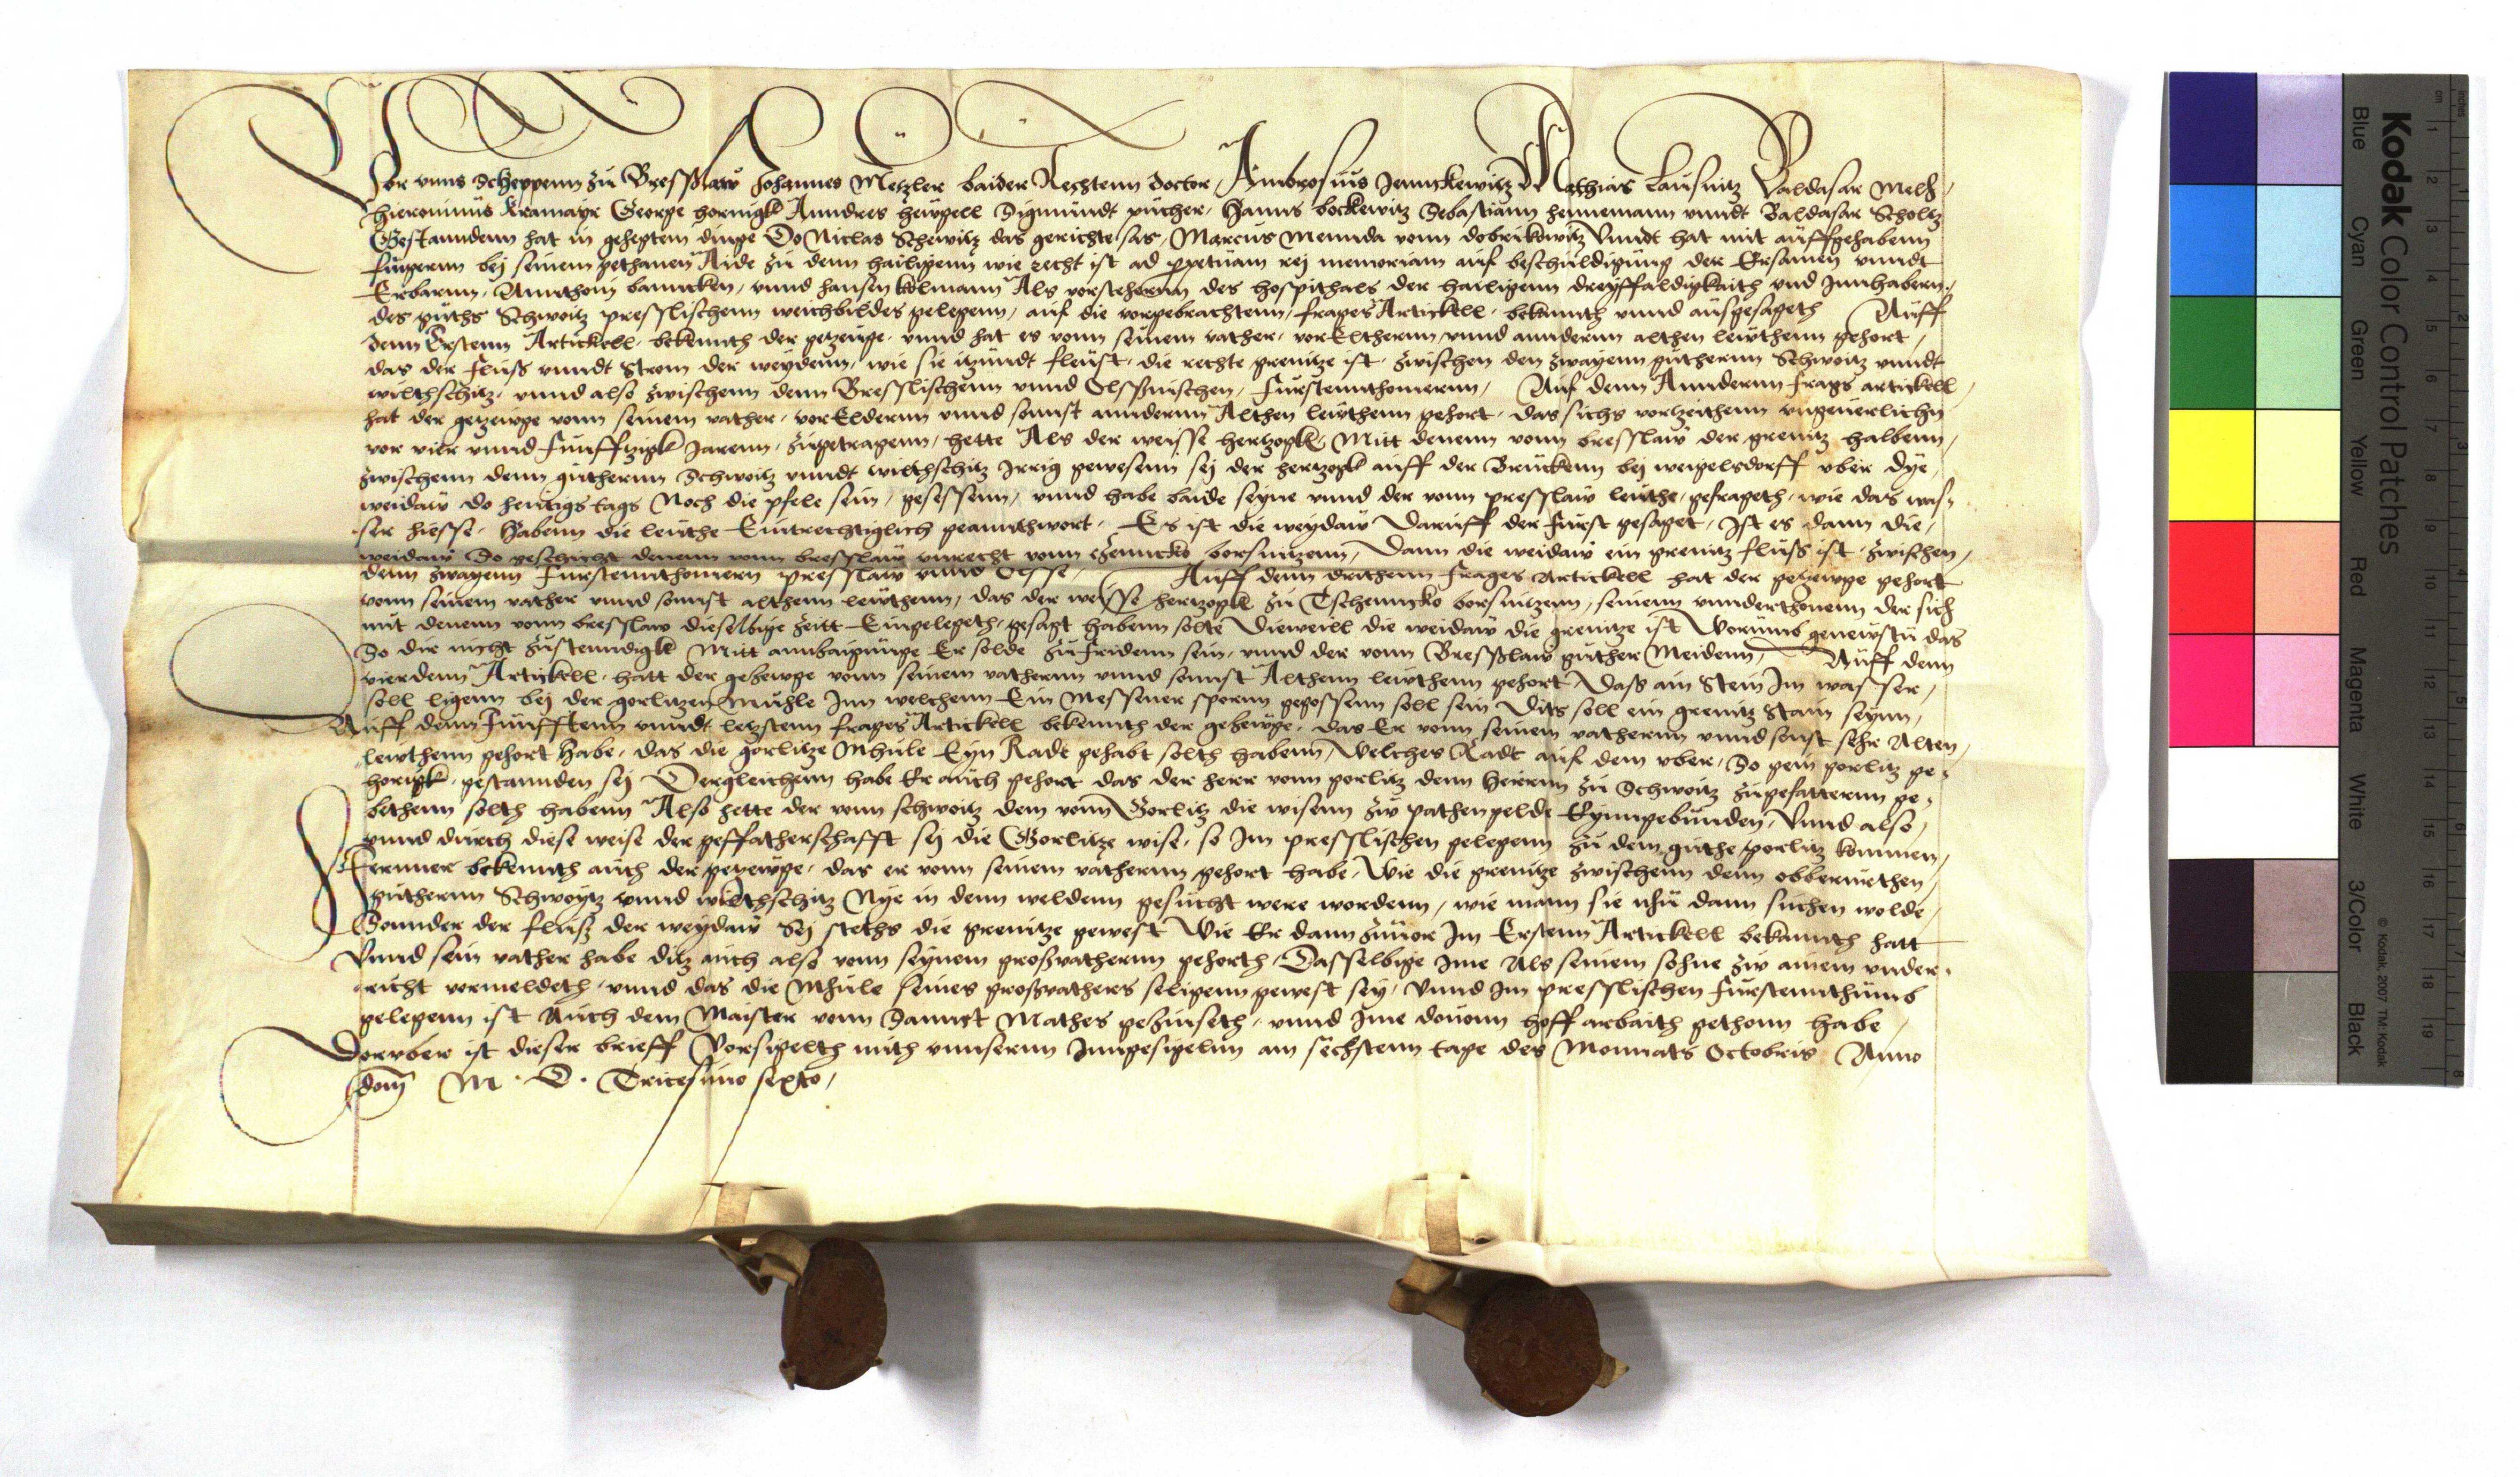 Vor vnns Scheppenn zu Bresßlaw Johannes Metzler baider Rechtenn doctor, Ambrosius Jennckewitz Mathias Lausnitz Baldasar Melh,
Hieronimus Kramayr George hornigk Anndres heüpell Sigmundt pucher, Hanns bockewitz Sebastiann hennemann vnndt Baldasar Scholtz
Gestanndenn hat in gehegtem dinge Do Niclas Schewitz das gerichte sas, Marcus Mennda vonn dobrikowitz Vnndt hat mit auffgehabenn
fingernn bej seinem gethanen Aide zu denn hailigenn wie recht ist ad perpetuam rej memoriam auf beschuldigung der Ersamen vnndt
Erbarnn, Annthonn bannckenn, vnnd hansen kolmann Als vorstehernn des hospithals der hailigenn dreyffaldigkaith vnd Innhabern,
des guths Schwoitz presslischenn weichbildes gelegenn, auf die vorgebrachtenn, frages Artickell, bekannth vnnd ausgesageth Auff
denn Erstenn Artickell, bekennth der getzeuge, vnnd hat es vonn seinem vather, vorElthernn, vnnd annderenn althen leuthenn gehort,
das der fluss vnndt Strom der weydenn, wie sie itzundt fleust, die rechte grenitze ist, zwischen den zwayenn güthernn Schwoitz vnndt
wilthschitz, vnnd also zwischenn denn Bresslischenn vnnd Olsßnischen, furstennthomernn, Auf denn Anndernn frags artickell,
hat der getzewge vonn seinem vather, vorEldernn vnnd sonnst anndernn Althen leuthenn gehort, das sichs vorzeithenn vngeuerlichn
vor vier vnnd funfftzigk Jarenn, zugetragenn, hette Als der weisse hertzogk, Mitt denenn vonn bresslaw der grenitz halbenn,
zwischenn denn guthernn Schwoitz vnndt wilthschitz Irrig gewesenn sej der hertzogk auff der Bruckenn bej weigelsdorff vber dye,
weidaw do heutigs tags Noch die pfele sein, gesessenn, vnnd habe baide seyne vnnd der vonn presslaw leuthe, gefrageth, wie das was,
ser hiesse, Habenn die leuthe Eintrechtiglich geannthwort, Es ist die weydaw Daruff der furst gesaget, Ist es dann die,
weidaw So geschicht denenn vonn bresslaw vnrecht vonn Zennicko borsnitzenn, Dann die weidaw ein grenitz fluss ist, zwischen,
denn zwayenn furstennthomern presslaw vnnd Olsse, Auff denn drithenn frages Artickell hat der getzewge gehort
vonn seinem vather vnnd sonnst althenn leuthenn, das der weisse hertzogk zu Tschenncko borsnitzenn, seinem vnnderthonenn der sich
mit denenn vonn bresslaw dieselbige zeitt Eingelegeth, gesagt habenn solte Dieweill die weidaw die grenitze ist Worumb genewstu das
So dir nicht zustenndigk Mitt anntzaigunge Er solde zufridenn sein, vnnd der vonn Bresslaw guther Meidenn, Auff denn
vierdenn Artickell, hatt der gezewge vonn seinem vathernn vnnd sonnst Althenn leuthenn gehort Dass ain Stein Im wasser,
soll ligenn bej der gorlitzen Muhle Inn welchenn Ein Messener sporn gegossenn soll sein Dits soll ein grenitz Stain seynn,
Auff denn Funfftenn vnndt letzstenn frages Artickell bekennth der gezewge, das Er vonn seinem vathernn vnnd sonst sehr Alten,
leuthenn gehort habe, das die gorlitze Mhule Eyn Radt gehabt solth habenn, Welches Radt auf dem vber, So gein gorlitz ge,
horigk, gestannden sej Dergleichenn habe Er auch gehort das der herr vonn gorlitz denn Herrnn zu Schwoitz zugefatternn ge,
bethenn solth habenn Also hette der vonn schwoitz dem vonn Gorlitz die wisenn zw pathengelde Eynngebunden, Vnnd also,
vnnd durch diese weise der geffatherschafft sej die Gorlitze wise, so Im presslischen gelegenn zu dem guthe gorlitz kommen,
Fernner bekennth auch der getzewge, das er vonn seinem vathernn gehort habe, Wie die grenitze zwischenn denn obberurthen,
guthernn Schwoytz vnnd wilthschitz Nye in denn weldenn gesucht were wordenn, wie mann sie nhu dann suchen wolde,
Sonnder der fluss der weydaw Sej steths die grenitze gewest Wie Er dann zuuor Im Erstenn Artickell bekannth hatt
Vnnd sein vather habe ditz auch also vonn seynem grossvathernn gehorth, Dasselbige Ime Als seinem sohne zw ainem vnder,
richt vormeldeth, vnnd das die Mhule seines grossvathers seligenn gewest sey, Vnnd Im presslischen furstennthumb
gelegenn ist Auch dem Maister vonn Sannct Mathes gezinseth, vnnd Ime douonn hoff arbaith gethonn habe,
Doruber ist dieser brieff Vorsigelth mith vnnserm Inngesigelnn am sechstenn tage des Monnats Octobris Anno
dom M. D. Tricesimo sexto,
Kodak Color Control Patches
Blue Cyan Green Yellow Red Magenta White 3/Color Black
© Kodak, 2007 TM: Kodak
inches 1 2 3 4 5 6 7 8
cm 1 2 3 4 5 6 7 8 9 10 11 12 13 14 15 16 17 18 19